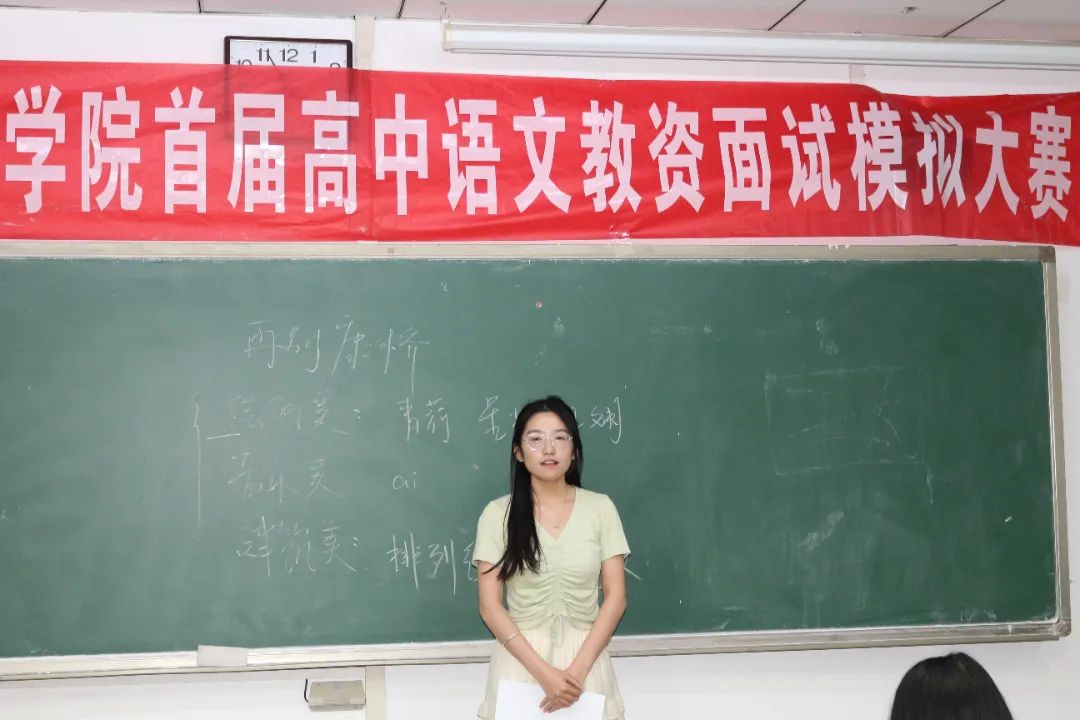 11 12 1
学院首届高中语文教资面试模拟大赛
再别康桥
绘画美: 青荇
音乐美 ai
建筑美: 排列